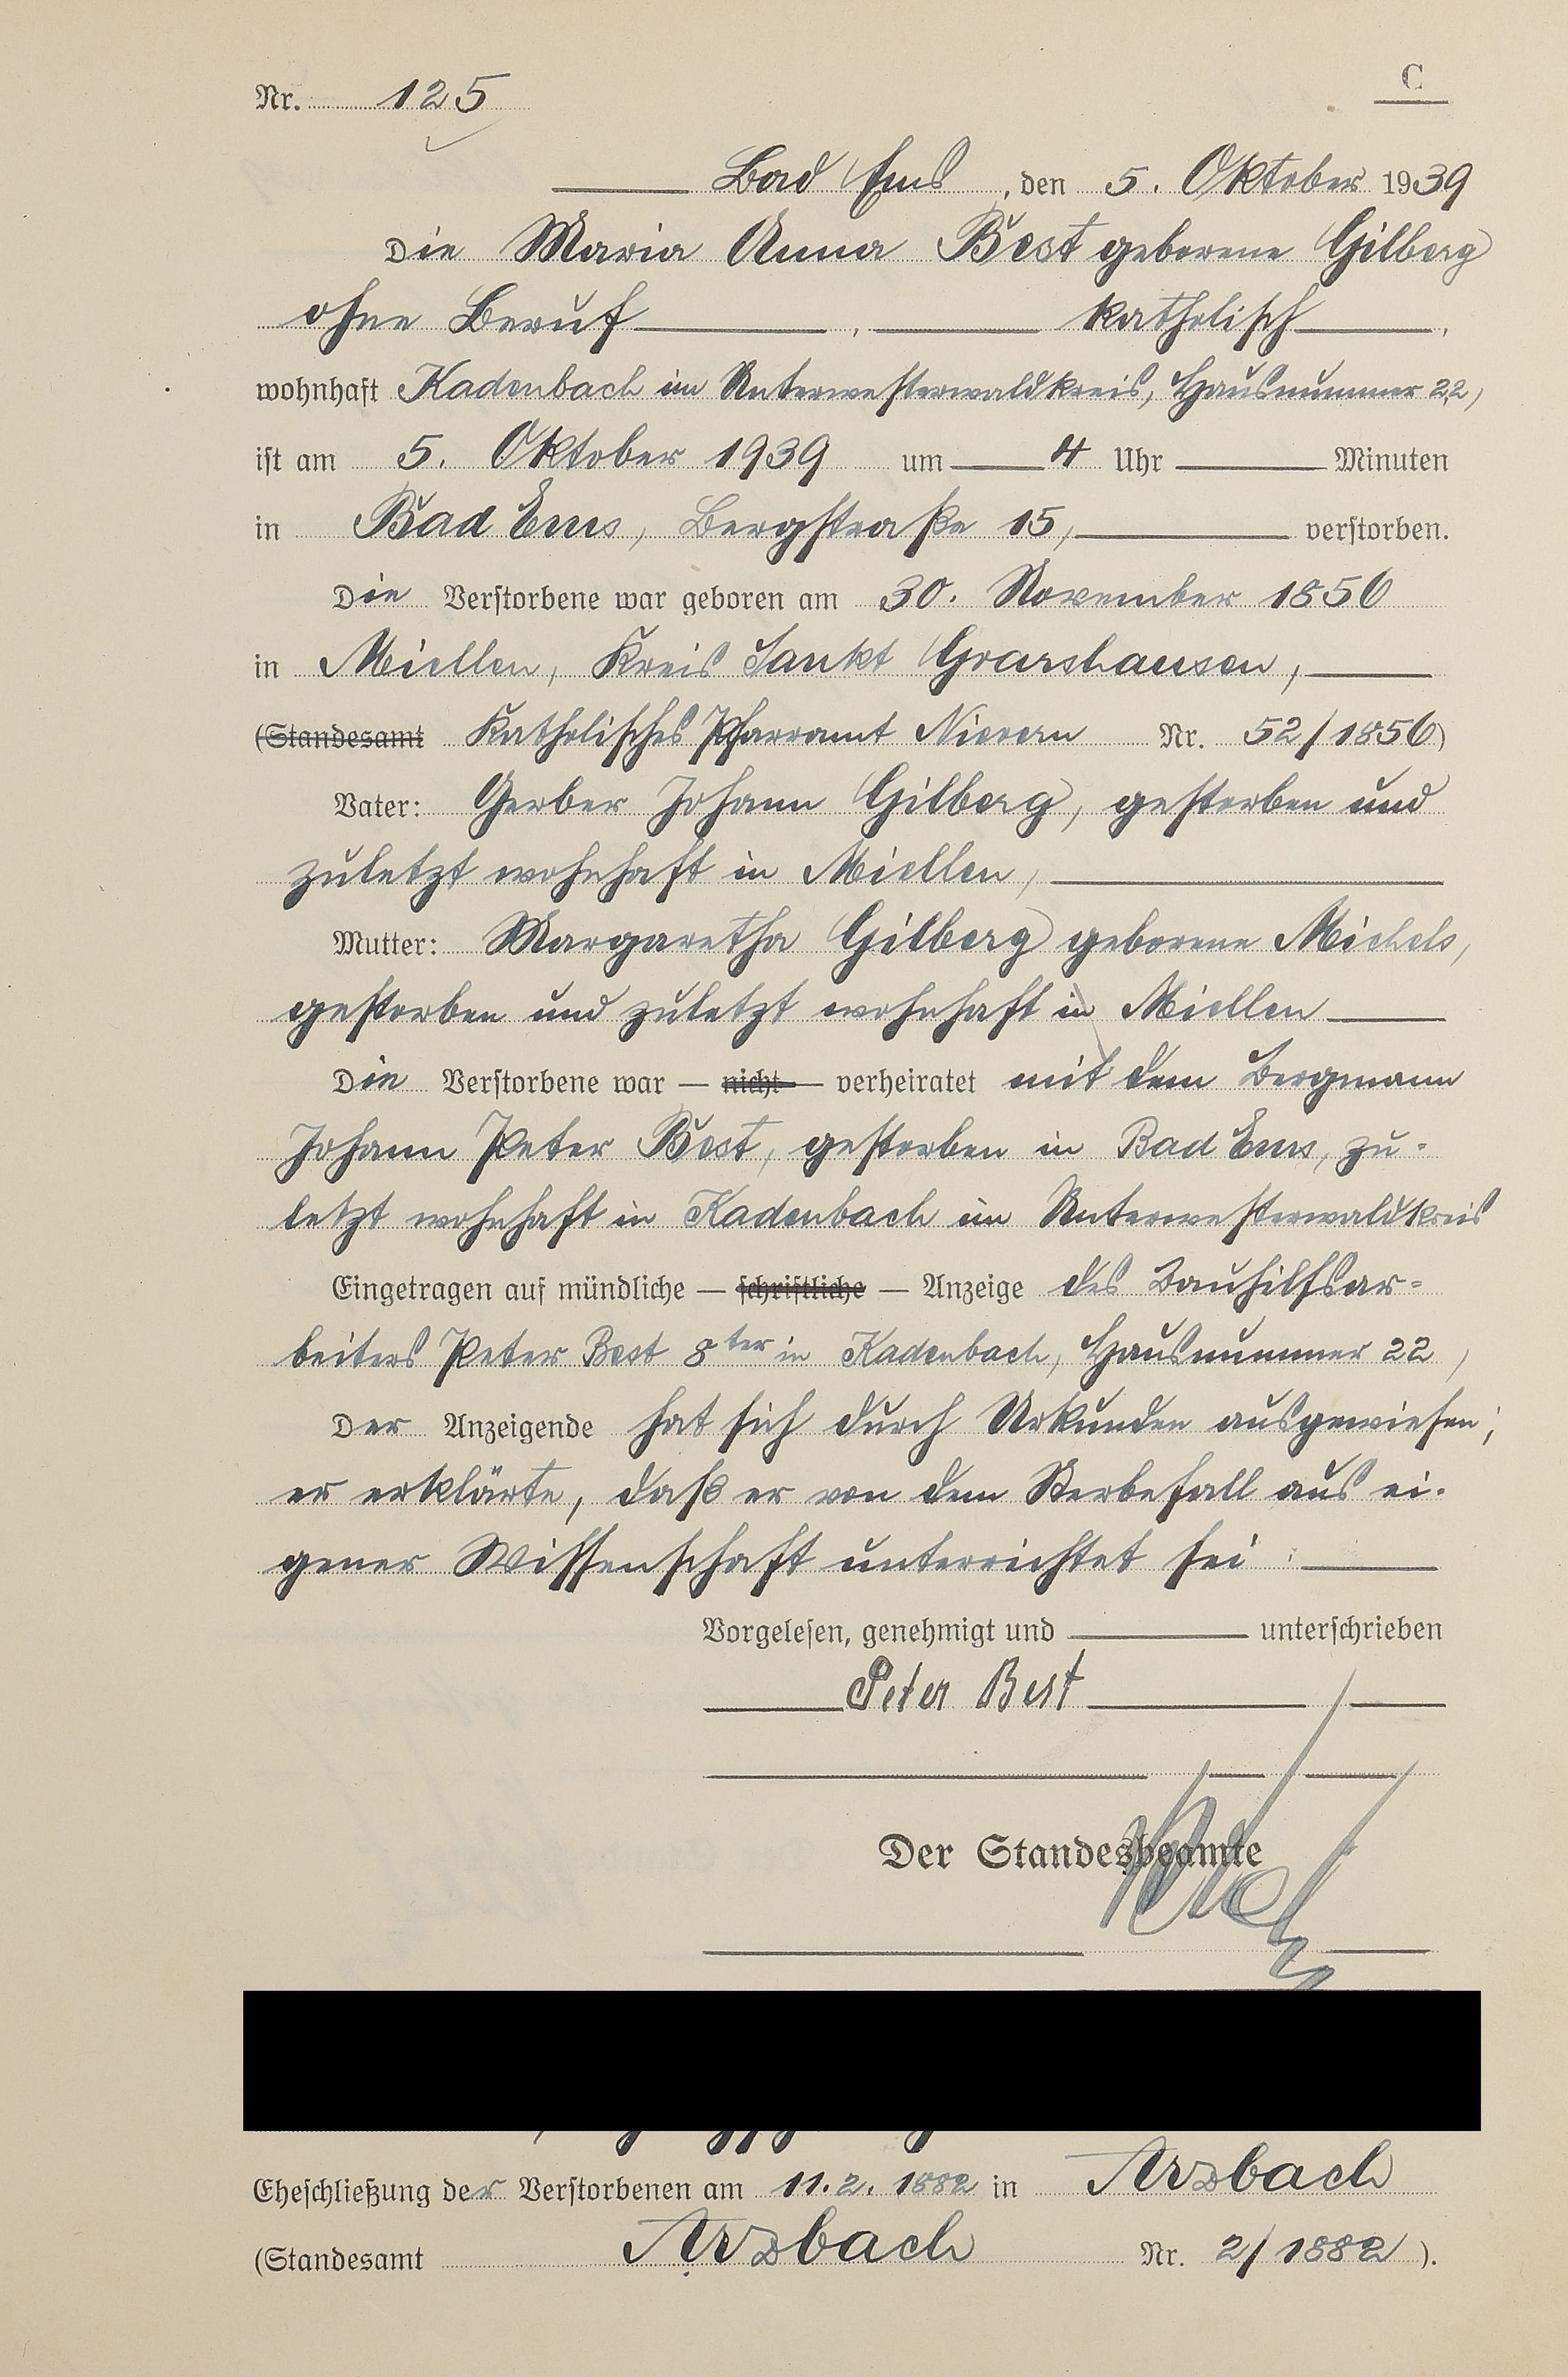 Nr. 125
C
Bad Ems, den 5. Oktober 1939
Die Maria Anna Best geborene Gilberg
ohne Beruf, katholisch,
wohnhaft Kadenbach im Unterwesterwaldkreis, Hausnummer 22,
ist am 5. Oktober 1939 um 4 Uhr Minuten
in Bad Ems, Bergstraße 15, verstorben.
Die Verstorbene war geboren am 30. November 1856
in Miellen, Kreis Sankt Goarshausen,
(Standesamt Katholisches Pfarramt Nievern Nr. 52/1856)
Vater: Gerber Johann Gilberg, gestorben und
zuletzt wohnhaft in Miellen,
Mutter: Margaretha Gilberg geborene Michels,
gestorben und zuletzt wohnhaft in Miellen
Die Verstorbene war — nicht — verheiratet mit dem Bergmann
Johann Peter Best, gestorben in Bad Ems, zu-
letzt wohnhaft in Kadenbach im Unterwesterwaldkreis
Eingetragen auf mündliche — schriftliche — Anzeige des Bauhilfsar-
beiters Peter Best 8ter in Kadenbach, Hausnummer 22,
Der Anzeigende hat sich durch Urkunden ausgewiesen;
er erklärte, daß er von dem Sterbefall aus ei-
gener Wissenschaft unterrichtet sei.
Vorgelesen, genehmigt und unterschrieben
Peter Best
Der Standesbeamte
Eheschließung der Verstorbenen am 11.2.1882 in Arzbach
(Standesamt Arzbach Nr. 2/1882).